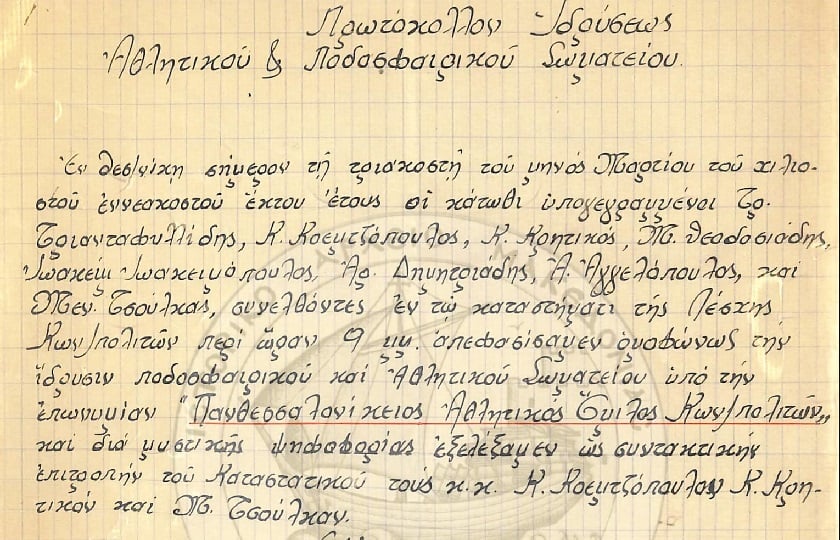 Πρωτόκολλον Ἱδρύσεως
Ἀθλητικοῦ & Ποδοσφαιρικοῦ Σωματείου.
Ἐν Θεσ/νίκῃ σήμερον τῇ τριακοστῇ τοῦ μηνός Μαρτίου τοῦ χιλιο-
στοῦ ἐννεακοστοῦ ἕκτου ἔτους οἱ κάτωθι ὑπογεγραμμένοι Τρ.
Τριανταφυλλίδης, Κ. Κρεμτζόπουλος, Κ. Κρητικός, Μ. Θεοδοσιάδης,
Ἰωακείμ Ἰωακειμόπουλος, Ἀρ. Δημητριάδης, Ἀ. Ἀγγελόπουλος, καί
Μεν. Τσούλκας, συνελθόντες ἐν τῷ καταστήματι τῆς Λέσχης
Κων/πολιτῶν περί ὥραν 9 μμ. ἀπεφασίσαμεν ὁμοφώνως τήν
ἵδρυσιν ποδοσφαιρικοῦ καί Ἀθλητικοῦ Σωματείου ὑπό τήν
ἐπωνυμίαν "Πανθεσσαλονίκειος Ἀθλητικός Ὅμιλος Κων/πολιτῶν„
καί διά μυστικῆς ψηφοφορίας ἐξελέξαμεν ὡς συντακτικήν
ἐπιτροπήν τοῦ Καταστατικοῦ τούς κ.κ. Κ. Κρεμτζόπουλον Κ. Κρη-
τικόν καί Μ. Τσούλκαν.